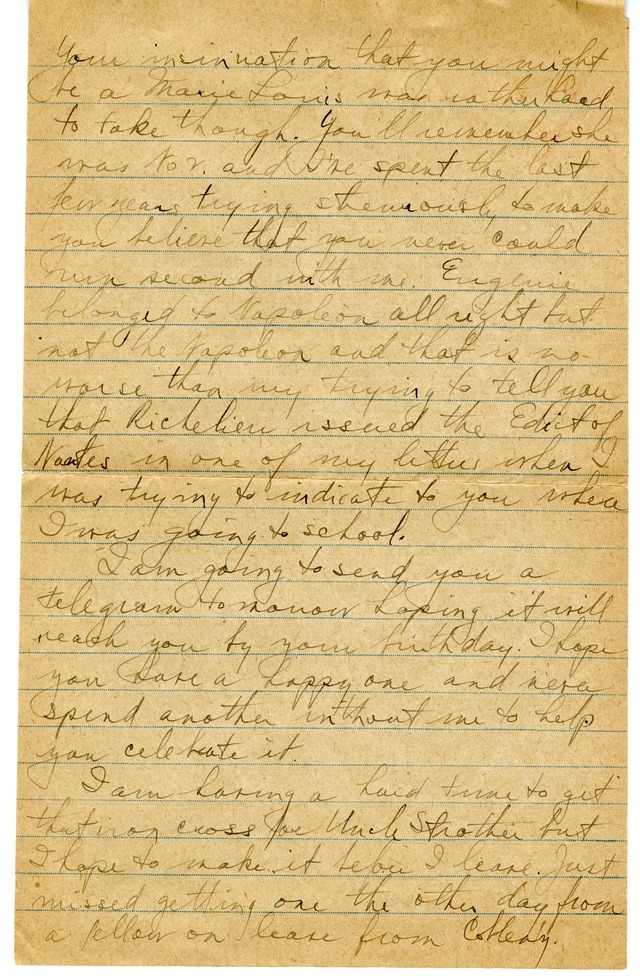 Your insinuation that you might
be a Marie Louis was rather hard
to take though. You'll remember she
was No 2. and I've spent the last
few years trying strenuously to make
you believe that you never could
run second with me. Eugenie
belonged to Napoleon all right but
not the Napoleon and that is no
worse than my trying to tell you
that Richelieu issued the Edict of
Nantes in one of my letters when I
was trying to indicate to you where
I was going to school.
I am going to send you a
telegram tomorrow hoping it will
reach you by your birthday. I hope
you have a happy one and never
spend another without me to help
you celebrate it.
I am having a hard time to get
that iron cross for Uncle Strother but
I hope to make it before I leave. Just
missed getting one the other day from
a fellow on leave from